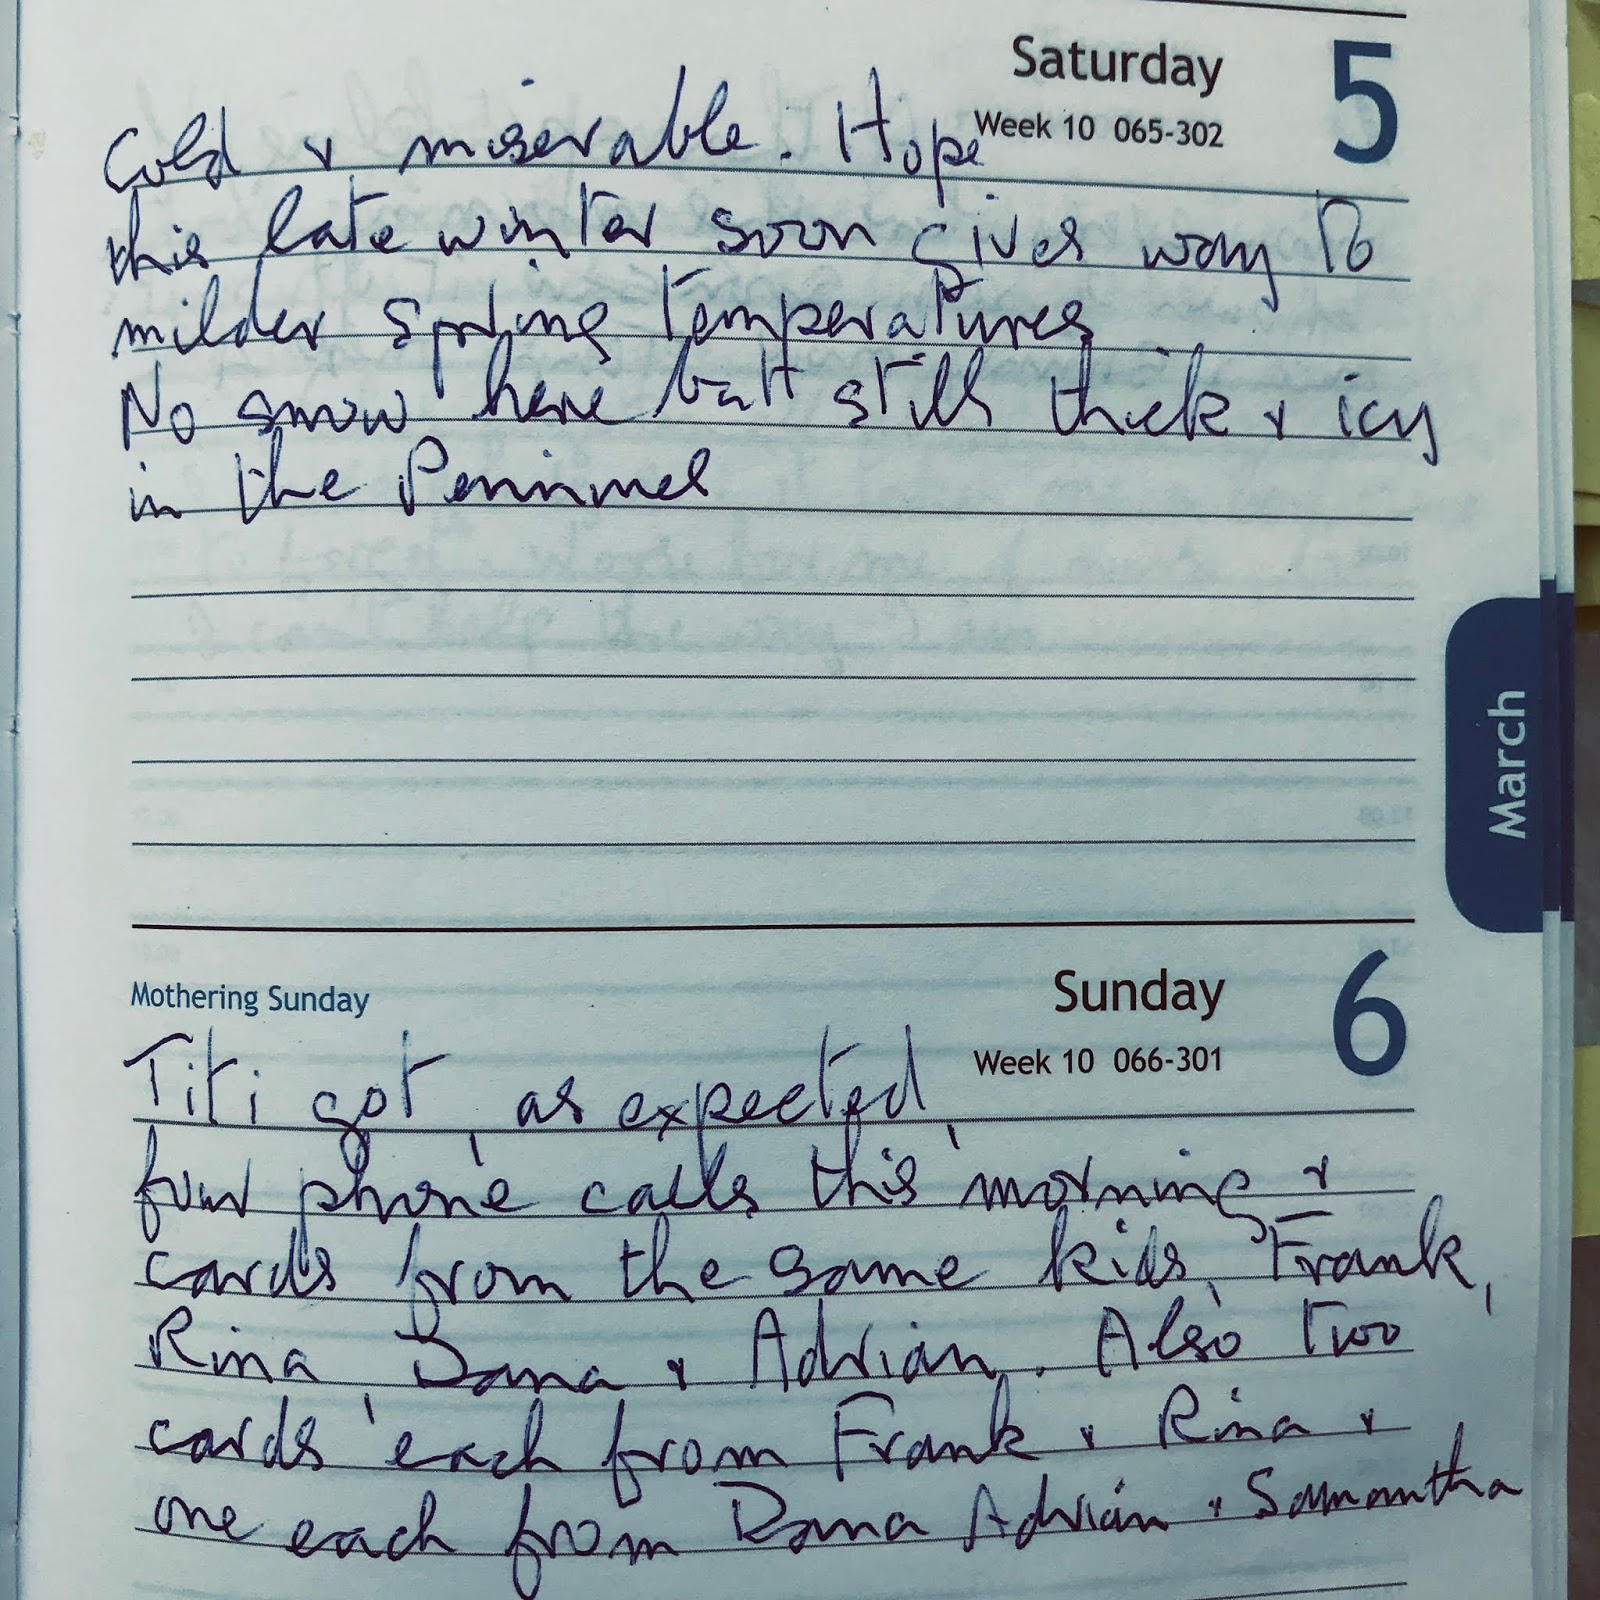 Saturday 5
Week 10 065-302
Cold & miserable. Hope
this late winter soon gives way to
milder spring temperatures
No snow here but still thick & icy
in the Pennines
March
Mothering Sunday
Sunday 6
Week 10 066-301
Titi got, as expected,
four phone calls this morning &
cards from the same kids, Frank,
Rina, Dana & Adrian. Also two
cards each from Frank & Rina &
one each from Dana Adrian & Samantha